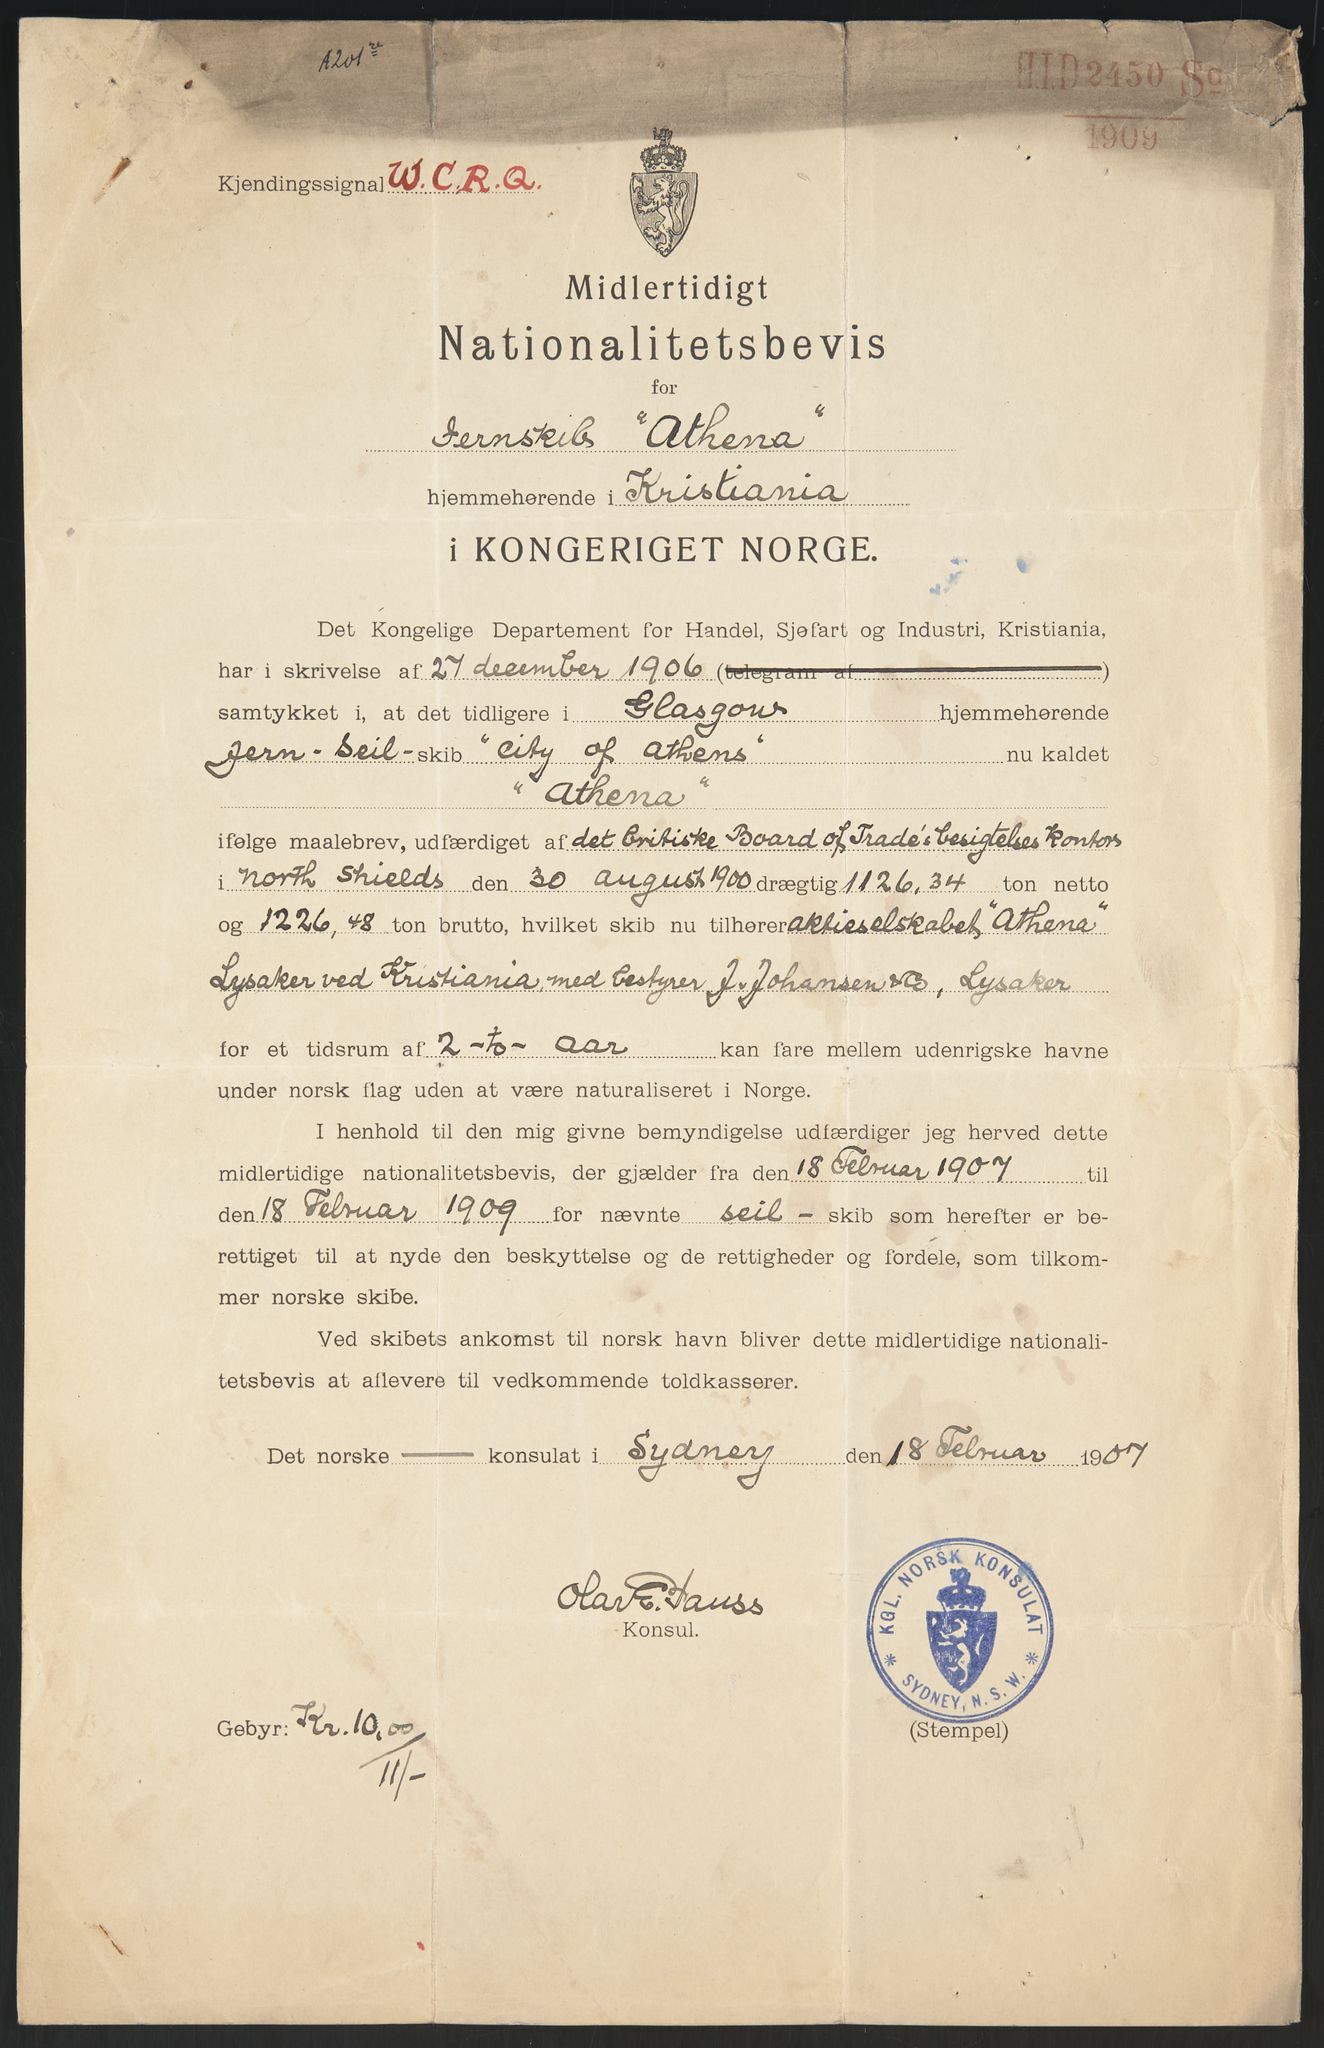 A201
H.I.D 2450 Sa
1909
Kjendingssignal W.C.R.Q.
Midlertidigt
Nationalitetsbevis
for
Jernskib "Athena"
hjemmehørende i Kristiania
i KONGERIGET NORGE.
Det Kongelige Departement for Handel, Sjøfart og Industri, Kristiania,
har i skrivelse af 27 december 1906 (telegram af )
samtykket i, at det tidligere i Glasgow hjemmehørende
Jern-Seil-skib "City of Athens" nu kaldet
"Athena"
ifølge maalebrev, udfærdiget af det britiske Board of Trade's besigtelses kontors
i North Shields den 30 august 1900 drægtig 1126,34 ton netto
og 1226,48 ton brutto, hvilket skib nu tilhører aktieselskabet "Athena"
Lysaker ved Kristiania, med bestyrer J. Johansen & Co, Lysaker
for et tidsrum af 2 -to- aar kan fare mellem udenrigske havne
under norsk flag uden at være naturaliseret i Norge.
I henhold til den mig givne bemyndigelse udfærdiger jeg herved dette
midlertidige nationalitetsbevis, der gjælder fra den 18 Februar 1907 til
den 18 Februar 1909 for nævnte seil - skib som herefter er be-
rettiget til at nyde den beskyttelse og de rettigheder og fordele, som tilkom-
mer norske skibe.
Ved skibets ankomst til norsk havn bliver dette midlertidige nationali-
tetsbevis at aflevere til vedkommende toldkasserer.
Det norske —— konsulat i Sydney den 18 Februar 1907
Olav E. Pauss
Konsul.
KGL. NORSK KONSULAT
* SYDNEY, N. S. W. *
Gebyr: Kr. 10,00
11/-
(Stempel)